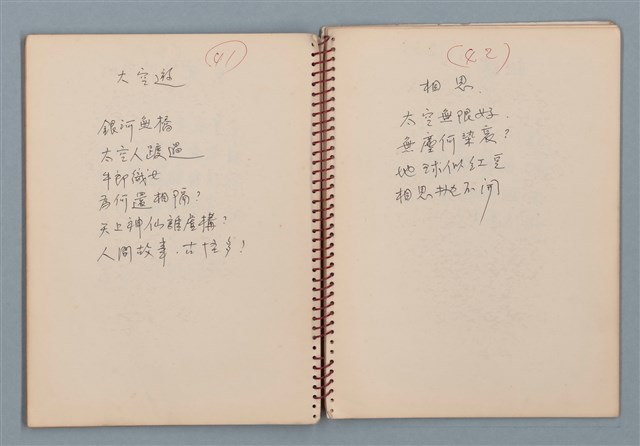 (41)
太空遊
銀河無橋
太空人踱過
牛郎織女
為何還相隔?
天上神仙雖虛構?
人間故事.古怪多!
(42)
相思.
太空無限好.
無塵何染裏?
地球似紅豆
相思枕不問